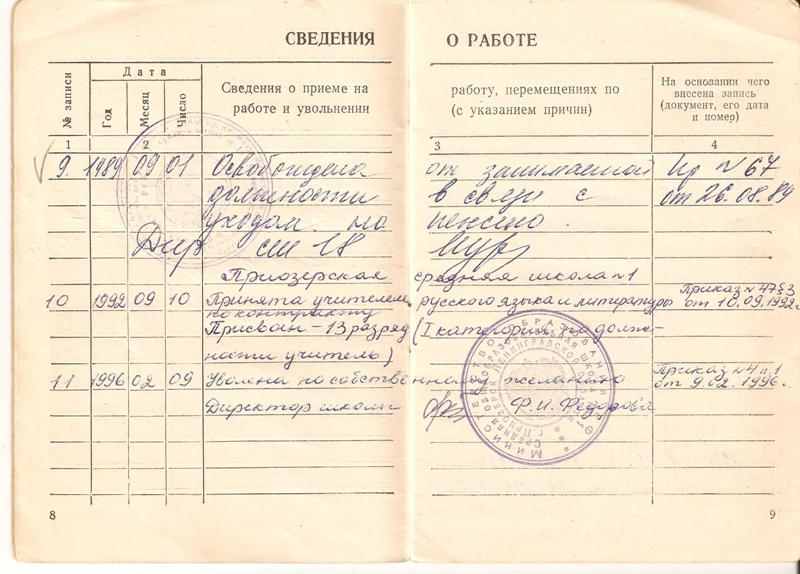 СВЕДЕНИЯ О РАБОТЕ
№ записи
Дата
Год
Месяц
Число
Сведения о приеме на
работе и увольнении
работу, перемещениях по
(с указанием причин)
На основании чего
внесена запись
(документ, его дата
и номер)
1 2 3 4
9. 1989 09 01 Освобождена от занимаемой Пр N 67
должности в связи с от 26.08.89
уходом на пенсию.
Дир сш 18
Приозерская средняя школа №1
10 1992 09 10 Принята учителем русского языка и литературы Приказ №47 §3
по контракту от 10.09.1992г.
Присвоен - 13 разряд (I категория по долж-
ности учитель)
11 1996 02 09 Уволена по собственному желанию Приказ №4 п.1
от 9.02.1996г.
Директор школы Ф.И. Федорова
8
9